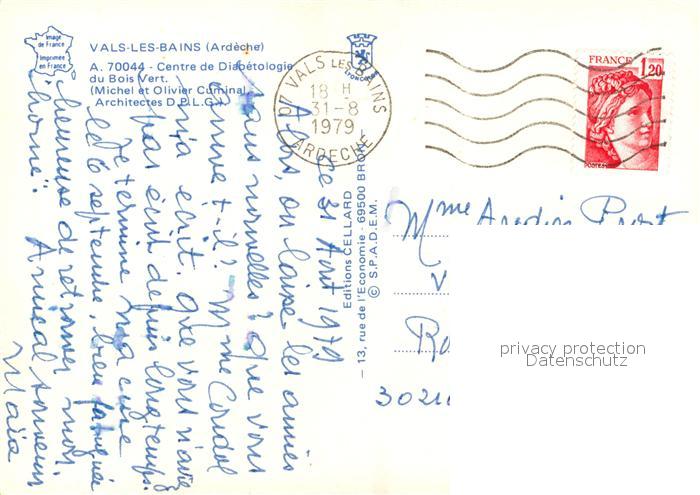 Image
de France
Imprimée
en France
VALS-LES-BAINS (Ardèche)
A. 70044 - Centre de Diabétologie
du Bois Vert.
(Michel et Olivier Cuminal
Architectes D.P.L.G.)
07 VALS LES BAINS
18 H
31-8
1979
ARDECHE
FRANCE
1,20
POSTES
Editions CELLARD
– 13, rue de l'Economie - 69500 BRON
© S.P.A.D.E.M.
ce 31 Août 1979
Alors, on laisse les amies
sans nouvelles? Que vous
arrive-t-il? Mme
m'a écrit. Que vous n'avez
pas écrit depuis longtemps.
Je termine ma cure
le 6 septembre, bien fatiguée
heureuse de retrouver mon
"home". Amical souvenir
Maïa
Mme
V
Ro
302
privacy protection
Datenschutz